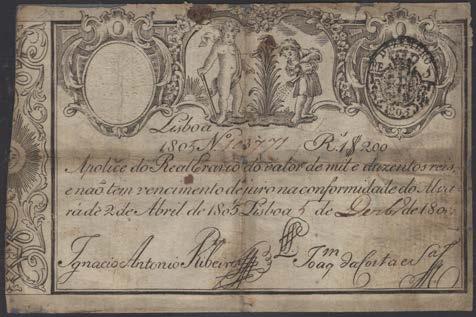 Lisboa
1805 N.º 103771 R.s 1$200
Apolice do Real Erario do valor de mil e duzentos reis,
e naõ tem vencimento de juro na conformidade do Alva
rá de 2 de Abril de 1805 Lisboa 5 de Dezb.º de 180
Ignacio Antonio Ribeiro Joaq.m da Costa e S.a